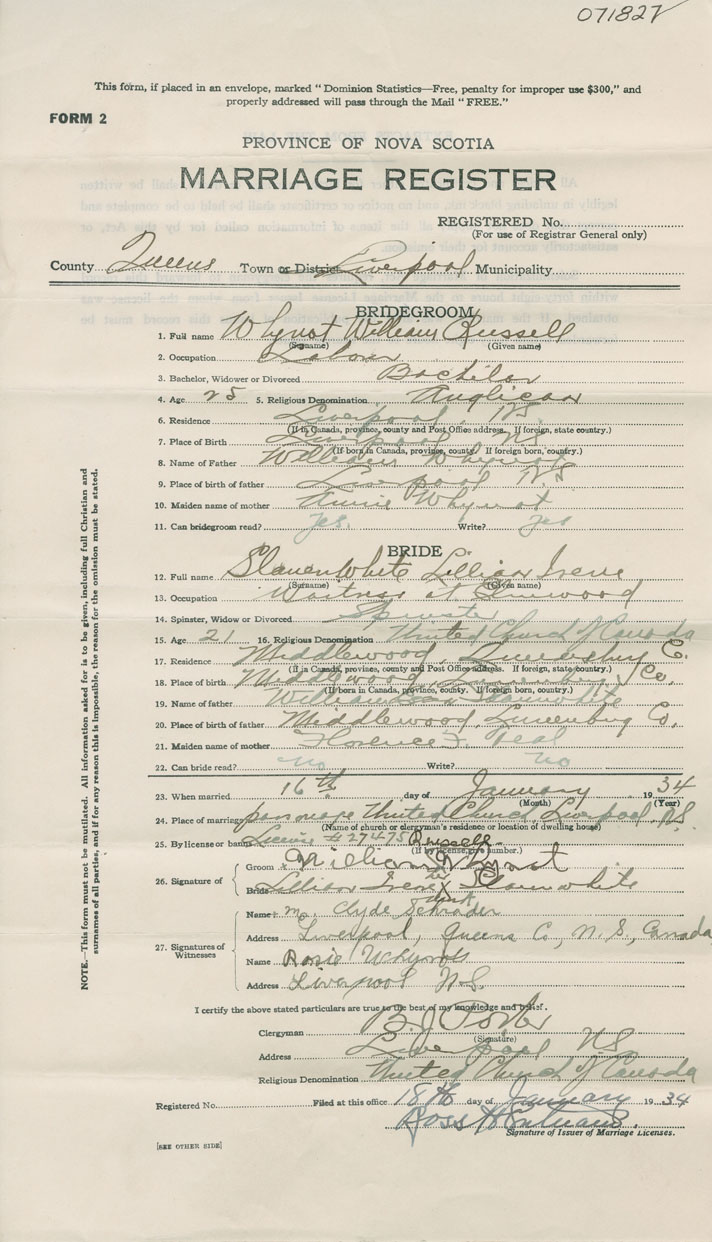 071827
This form, if placed in an envelope, marked "Dominion Statistics—Free, penalty for improper use $300," and
properly addressed will pass through the Mail "FREE."
FORM 2
PROVINCE OF NOVA SCOTIA
MARRIAGE REGISTER
REGISTERED No.
(For use of Registrar General only)
County Queens Town or District Liverpool Municipality
BRIDEGROOM
1. Full name Whynot William Russell
(Surname) (Given name)
2. Occupation Labour
3. Bachelor, Widower or Divorced Bachelor
4. Age 25 5. Religious Denomination Anglican
6. Residence Liverpool, NS
(If in Canada, province, county and Post Office address. If foreign, state country.)
7. Place of Birth Liverpool NS
(If born in Canada, province, county. If foreign born, country.)
8. Name of Father William Whynot
9. Place of birth of father Liverpool NS
10. Maiden name of mother Annie Whynot
11. Can bridegroom read? Yes. Write? Yes
BRIDE
12. Full name Slauenwhite Lillian Irene
(Surname) (Given name)
13. Occupation Waitress at Elmwood
14. Spinster, Widow or Divorced Spinster
15. Age 21 16. Religious Denomination United Church of Canada
17. Residence Middlewood, Lunenburg C.
(If in Canada, province, county and Post Office address. If foreign, state country.)
18. Place of Birth Middlewood, Lunenburg Co.
(If born in Canada, province, county. If foreign born, country.)
19. Name of father William Slaunwhite
20. Place of birth of father Middlewood, Lunenburg Co.
21. Maiden name of mother Florence F. Veal
22. Can bride read? No Write? No
23. When married 16th day of January 1934
(Month) (Year)
24. Place of marriage parsonage United Church Liverpool NS
(Name of church or clergyman's residence or location of dwelling house)
25. By license or banns License # 27475
(If by license, give number.)
Russell
26. Signature of
Groom William Whynot
Bride Lillian Irene X Slaunwhite
mark
27. Signatures of Witnesses
Name Clyde Schrader
Address Liverpool, Queens Co, N. S., Canada
Name Rosie Whynot
Address Liverpool N.S.
I certify the above stated particulars are true to the best of my knowledge and belief.
Clergyman B. J. Porter
(Signature)
Address Liverpool NS
Religious Denomination United Church of Canada
Registered No. Filed at this office 18th day of January 1934
Ross H
Signature of Issuer of Marriage Licenses.
[SEE OTHER SIDE]
NOTE.—This form must not be mutilated. All information asked for is to be given, including full Christian and
surnames of all parties, and if for any reason this is impossible, the reason for the omission must be stated.